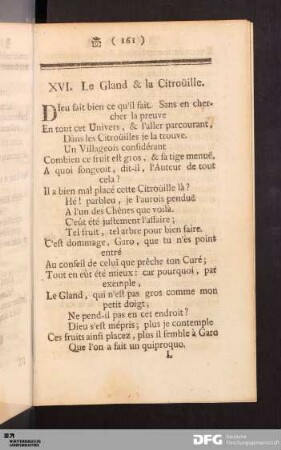 ( 161 )
XVI. Le Gland & la Citroüille.
DIeu fait bien ce qu'il fait. Sans en cher-
cher la preuve
En tout cet Univers, & l'aller parcourant,
Dans les Citroüilles je la trouve.
Un Villageois considérant
Combien ce fruit est gros, & sa tige menuë,
A quoi songeoit, dit-il, l'Auteur de tout
cela?
Il a bien mal placé cette Citroüille là?
Hé! parbleu, je l'aurois penduë
A l'un des Chênes que voilà.
C'eût été justement l'affaire;
Tel fruit, tel arbre pour bien faire.
C'est dommage, Garo, que tu n'es point
entré
Au conseil de celui que prêche ton Curé;
Tout en eût été mieux: car pourquoi, par
exemple,
Le Gland, qui n'est pas gros comme mon
petit doigt,
Ne pend-il pas en cet endroit?
Dieu s'est mépris; plus je contemple
Ces fruits ainsi placez, plus il semble à Garo
Que l'on a fait un quiproquo.
L
DFG
Deutsche
Forschungsgemeinschaft